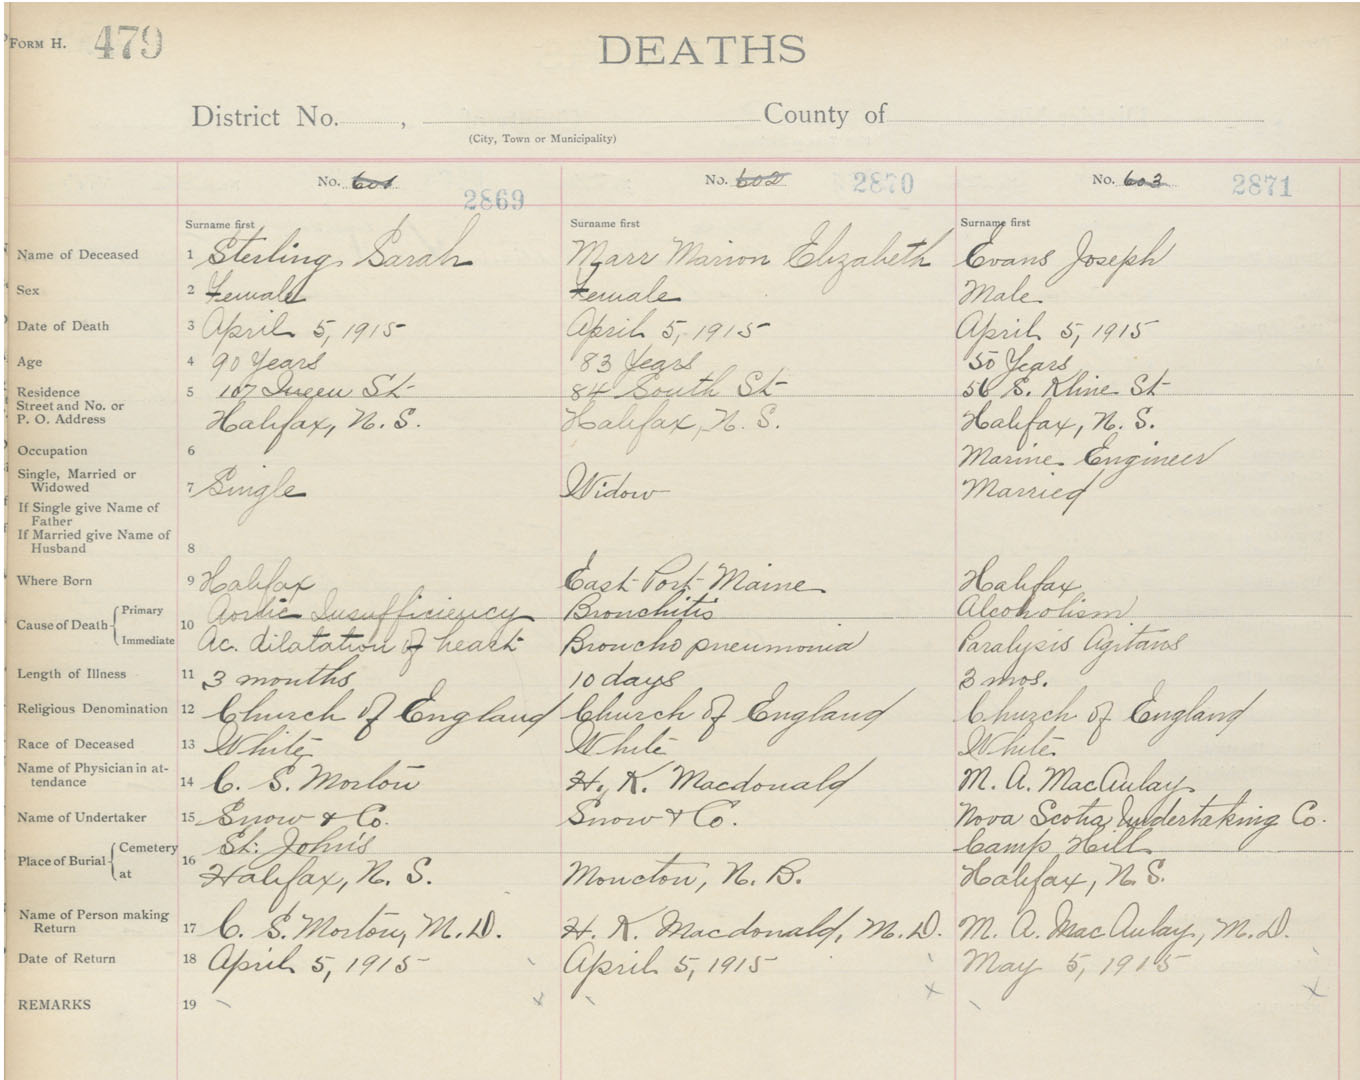 FORM H. 479
DEATHS
District No. , County of
(City, Town or Municipality)
No. 601 2869 No. 602 2870 No. 603 2871
Surname first Surname first Surname first
Name of Deceased 1 Sterling Sarah Marr Marion Elizabeth Evans Joseph
Sex 2 Female Female Male
Date of Death 3 April 5, 1915 April 5, 1915 April 5, 1915
Age 4 90 Years 83 Years 50 Years
Residence 5 107 Queen St 84 South St 56 S. Kline St
Street and No. or
P. O. Address Halifax, N. S. Halifax, N. S. Halifax, N. S.
Occupation 6 Marine Engineer
Single, Married or
Widowed 7 Single Widow Married
If Single give Name of
Father
If Married give Name of
Husband 8
Where Born 9 Halifax East Port Maine Halifax
Cause of Death Primary 10 Aortic Insufficiency Bronchitis Alcoholism
Immediate Ac. dilatation of heart Broncho pneumonia Paralysis Agitans
Length of Illness 11 3 months 10 days 3 mos.
Religious Denomination 12 Church of England Church of England Church of England
Race of Deceased 13 White White White
Name of Physician in at-
tendance 14 C. S. Morton H. K. Macdonald M. A. MacAulay
Name of Undertaker 15 Snow & Co. Snow & Co. Nova Scotia Undertaking Co.
Place of Burial Cemetery 16 St. John's Camp Hill
at Halifax, N. S. Moncton, N. B. Halifax, N. S.
Name of Person making
Return 17 C. S. Morton, M.D. H. K. Macdonald, M.D. M. A. MacAulay, M.D.
Date of Return 18 April 5, 1915 April 5, 1915 May 5, 1915
REMARKS 19